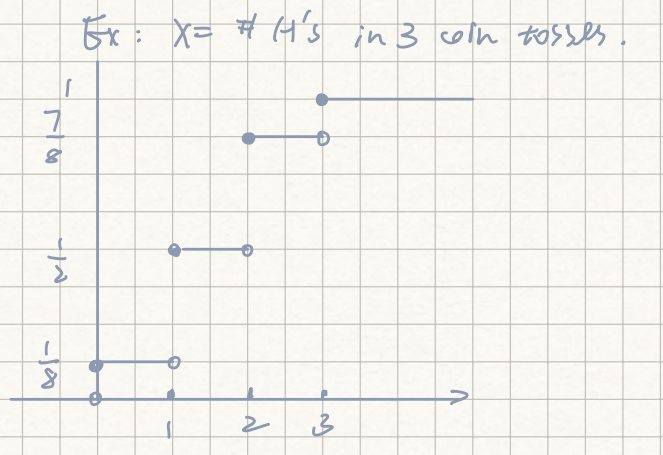 Ex: X = # H's in 3 coin tosses.
1
7/8
1/2
1/8
1 2 3